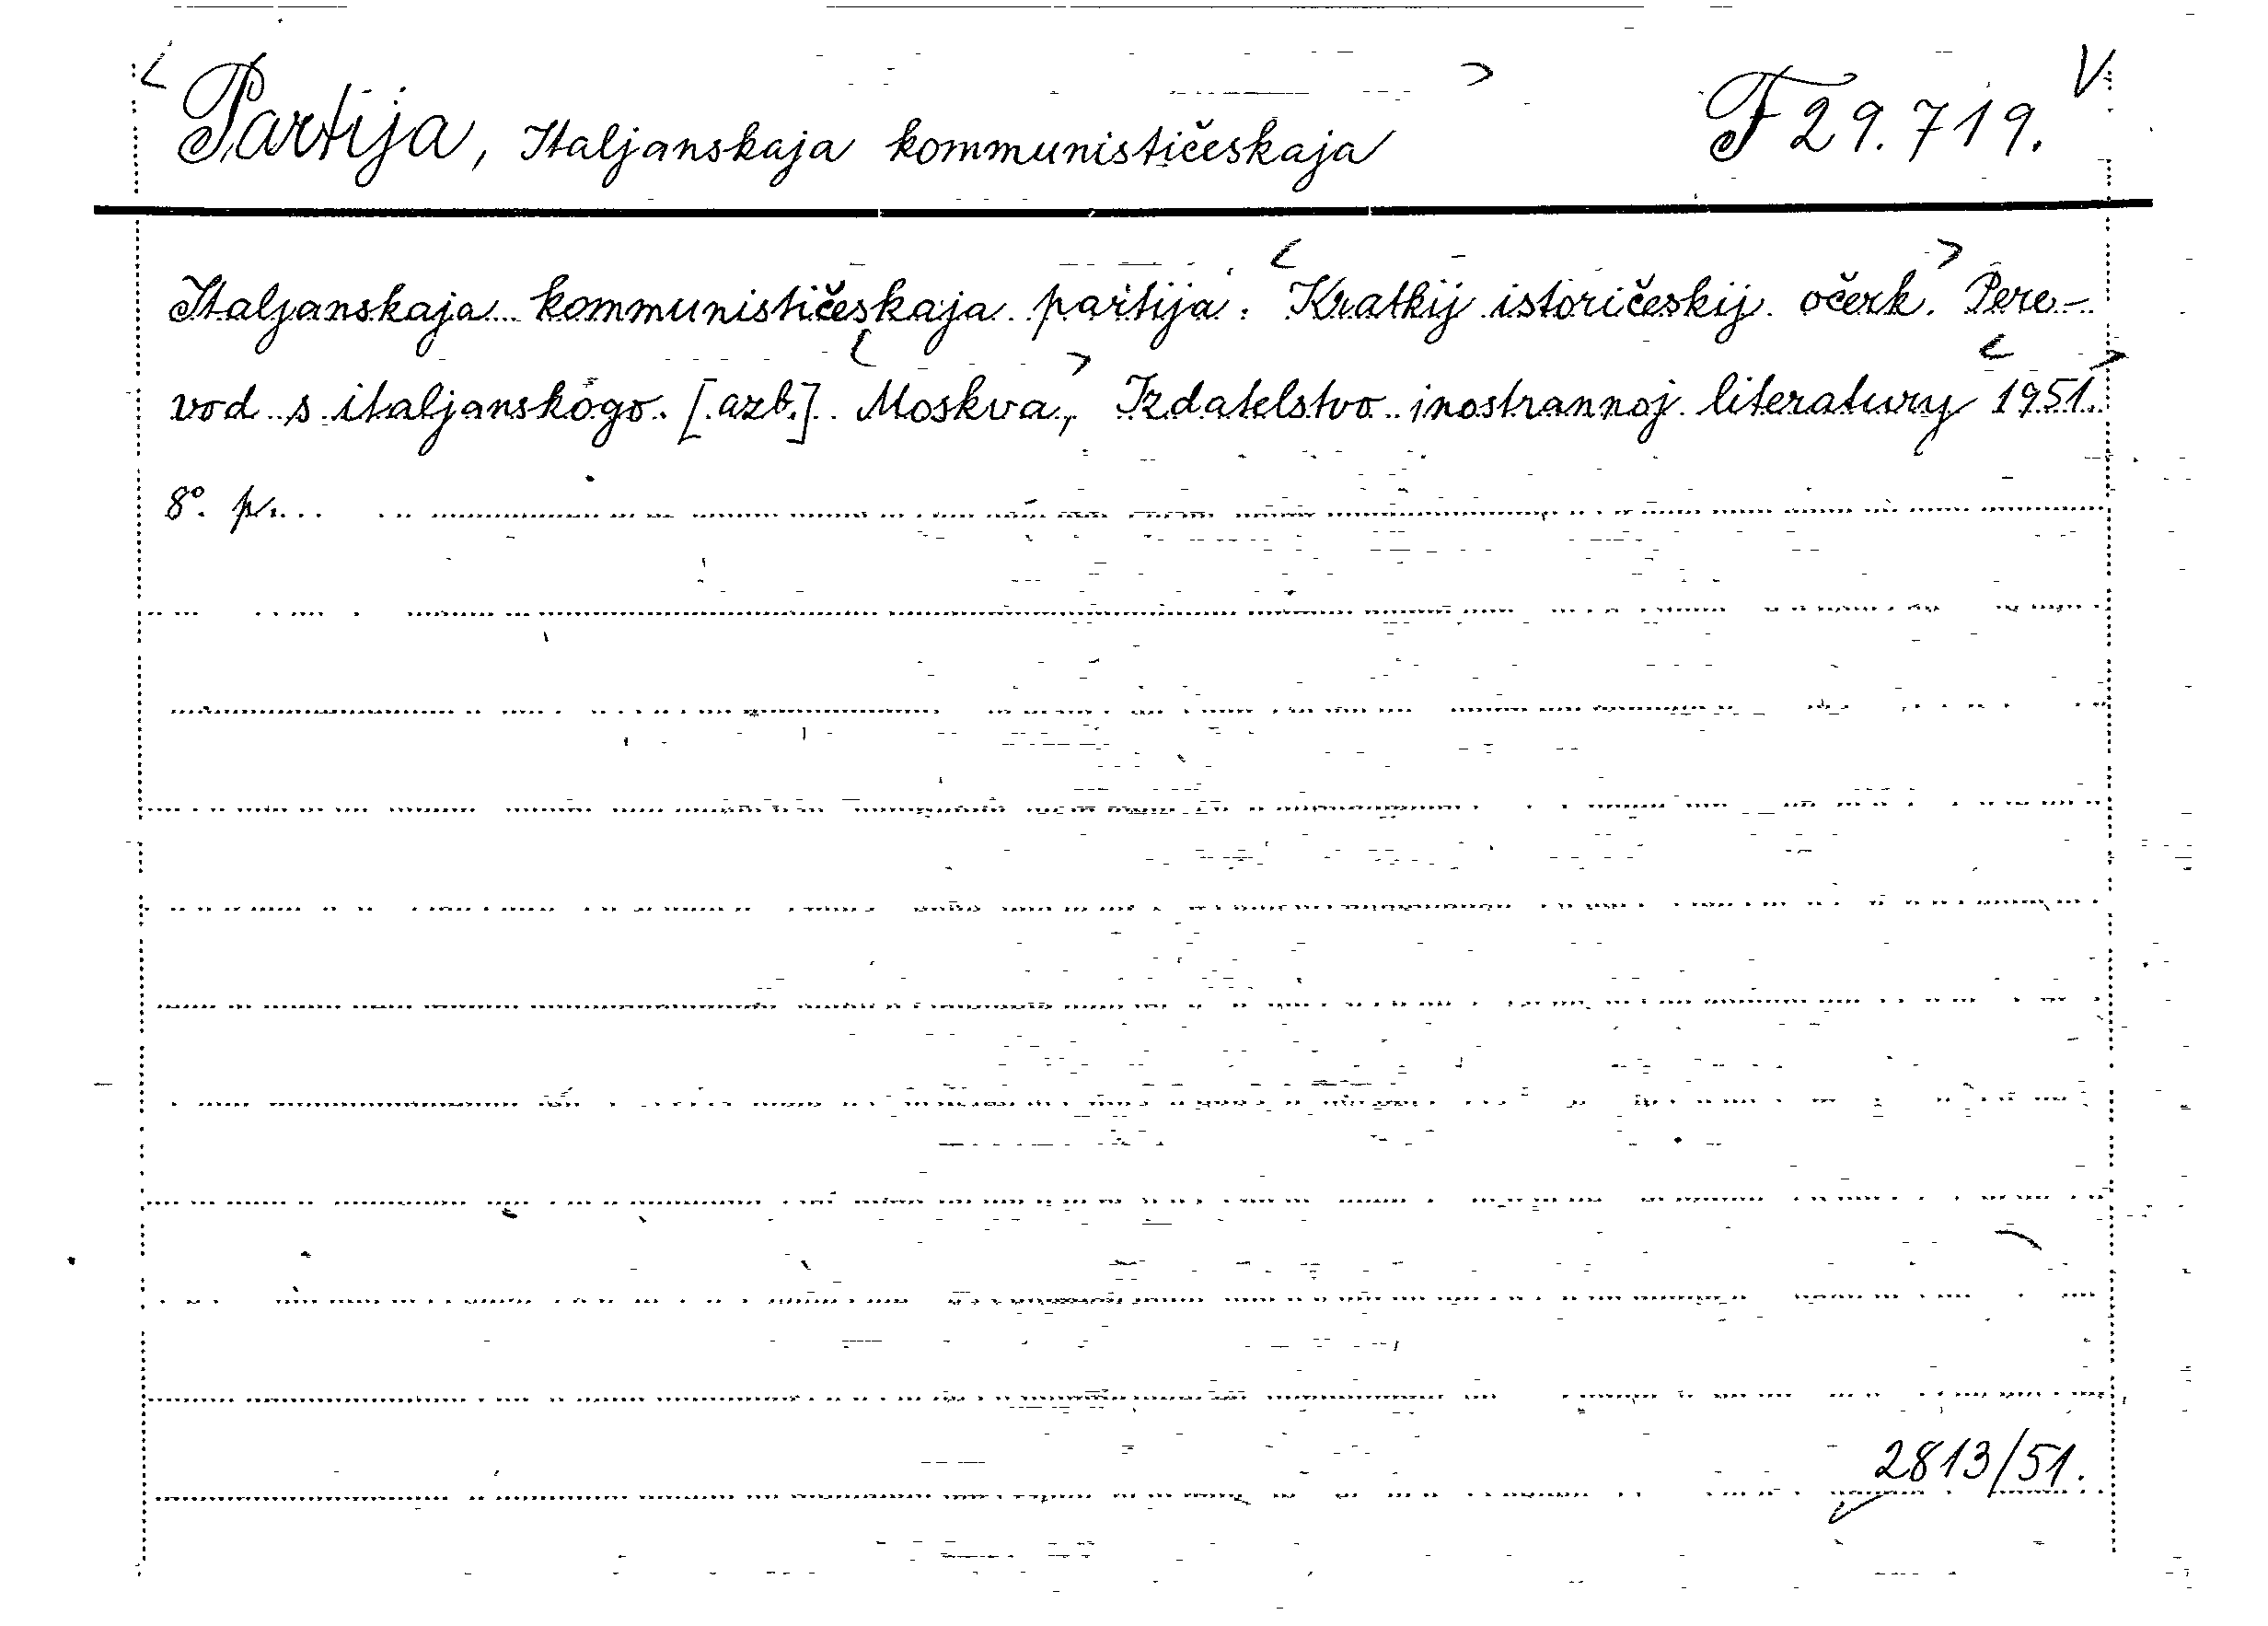 <Partija, Italjanskaja kommunističeskaja> F 29.719. V
Italjanskaja kommunističeskaja partija. <Kratkij istoričeskij očerk.> Pere-
vod s italjanskogo. [azb.] <Moskva,> Izdatelstvo inostrannoj literatury <1951.>
8°. pr.
2813/51.